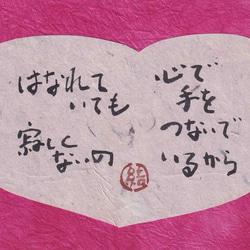 心で
手を
つないで
いるから
はなれて
いても
寂しく
ないの
結